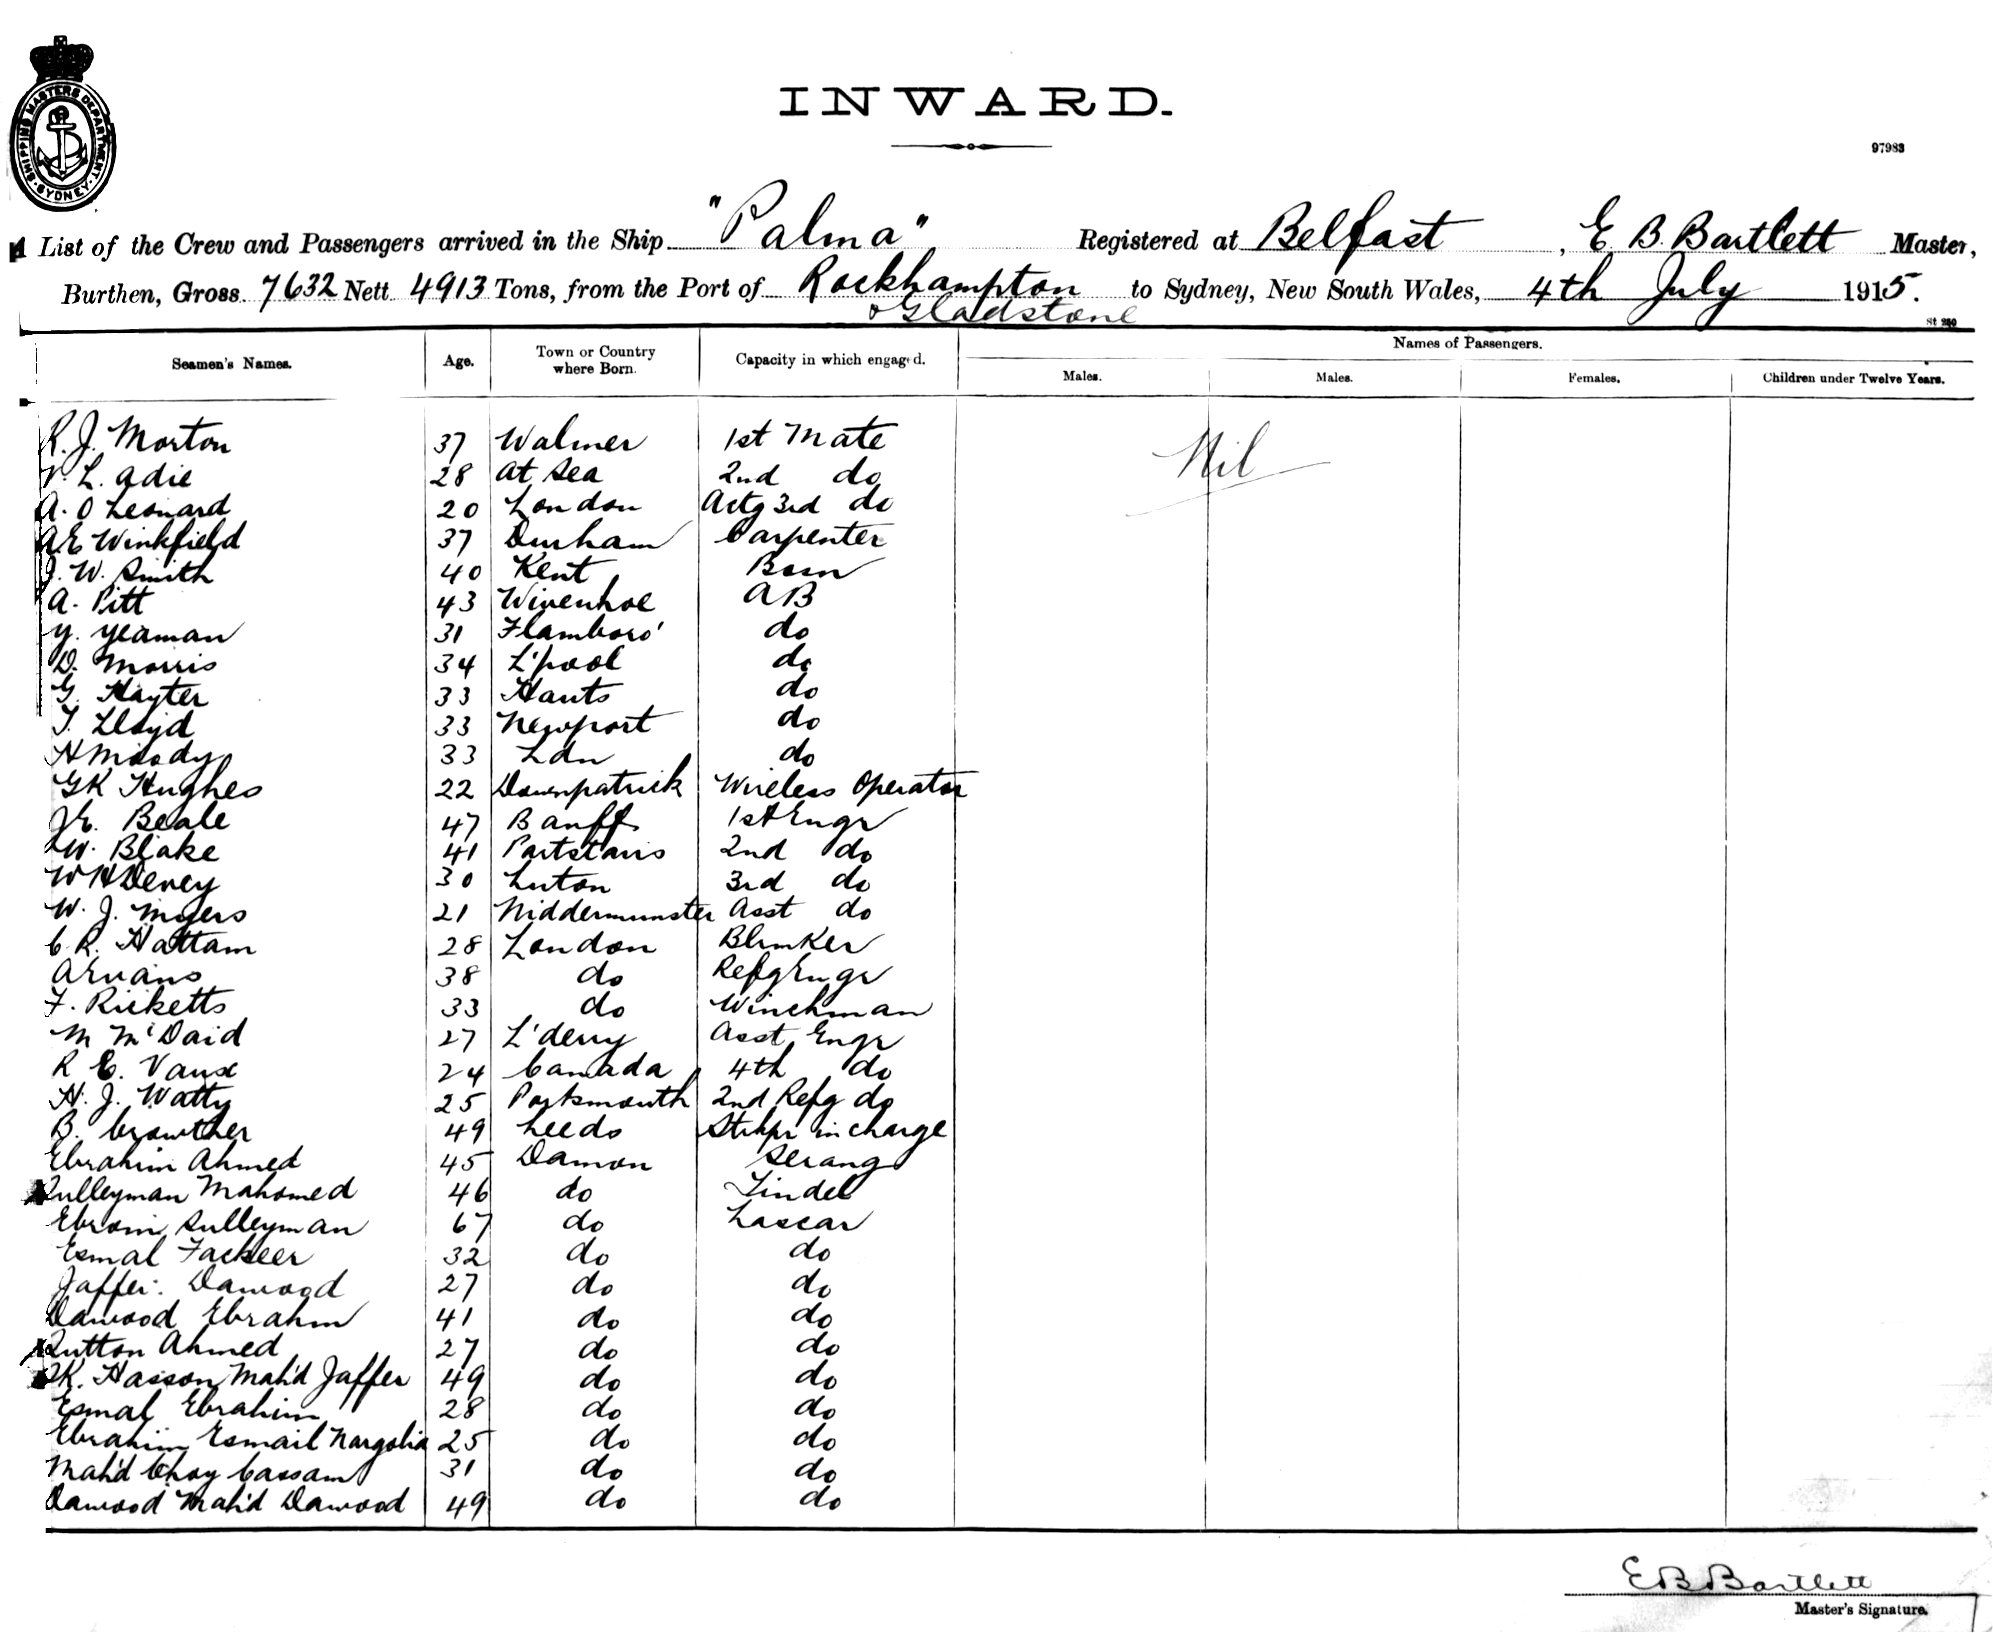 SHIPPING MASTERS DEPARTMENT · SYDNEY ·
INWARD.
97983
List of the Crew and Passengers arrived in the Ship "Palma" Registered at Belfast, E B. Bartlett Master,
Burthen, Gross 7632 Nett 4913 Tons, from the Port of Rockhampton to Sydney, New South Wales, 4th July 1915.
& Gladstone
St 250
Seamen's Names. Age. Town or Country where Born. Capacity in which engaged. Names of Passengers.
Males. Males. Females. Children under Twelve Years.
Nil
R. J. Morton 37 Walmer 1st Mate
L. Adie 28 At Sea 2nd do
A. O Leonard 20 London Actg 3rd do
A E Winkfield 37 Durham Carpenter
J. W. Smith 40 Kent Bosn
A. Pitt 43 Wivenhoe AB
Y. Yeaman 31 Flamboro' do
D. Morris 34 L'pool do
G. Hayter 33 Hants do
T. Lloyd 33 Newport do
H Moody 33 Ldn do
GK Hughes 22 Downpatrick Wireless Operator
J E. Beale 47 Banff 1st Engr
W. Blake 41 2nd do
W H Devey 30 Luton 3rd do
W. J. Myers 21 Asst do
C. R. Hattam 28 London
A Evans 38 do Refg Engr
F. Ricketts 33 do Winchman
M McDaid 27 L'derry Asst Engr
R E. Vaux 24 Canada 4th do
H. J. Watty 25 Portsmouth 2nd Refg do
B. Crowther 49 Leeds Strkpr in charge
Ebrahim Ahmed 45 Damon Serang
Sulleyman Mahomed 46 do Tindel
Ebraim Sulleyman 67 do Lascar
Esmal Fackeer 32 do do
Jaffer. Dawood 27 do do
Dawood Ebrahm 41 do do
Sutton Ahmed 27 do do
K. Hasson Mah'd Jaffer 49 do do
Esmal Ebrahim 28 do do
Ebrahim Esmail Nargolia 25 do do
Mah'd Choy Cassam 31 do do
Dawood Mah'd Dawood 49 do do
E B Bartlett
Master's Signature.